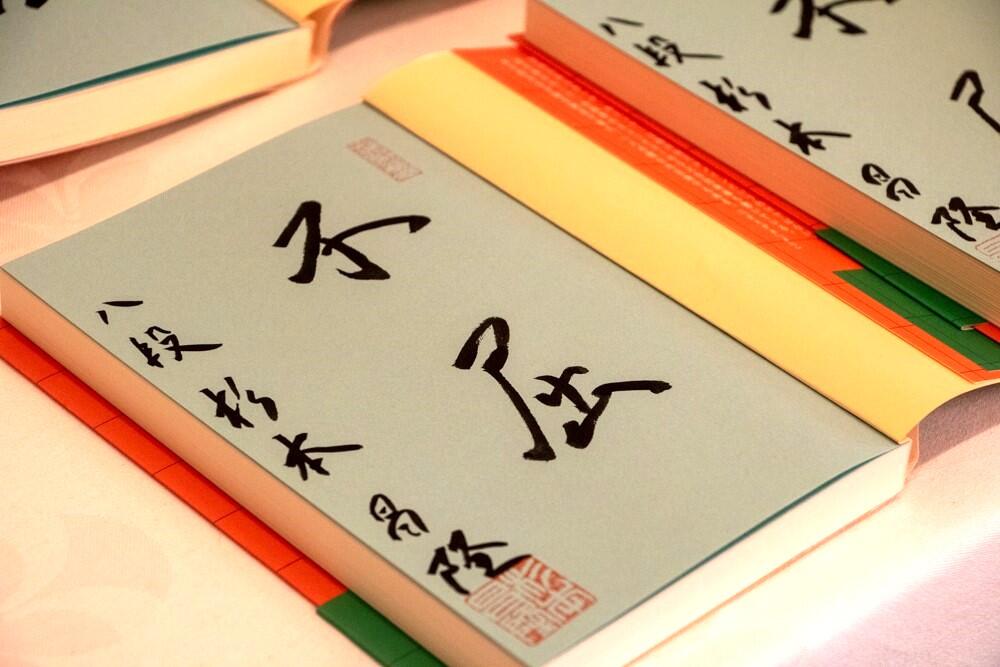 不屈
八段 杉本昌隆
不
八段 杉本昌隆